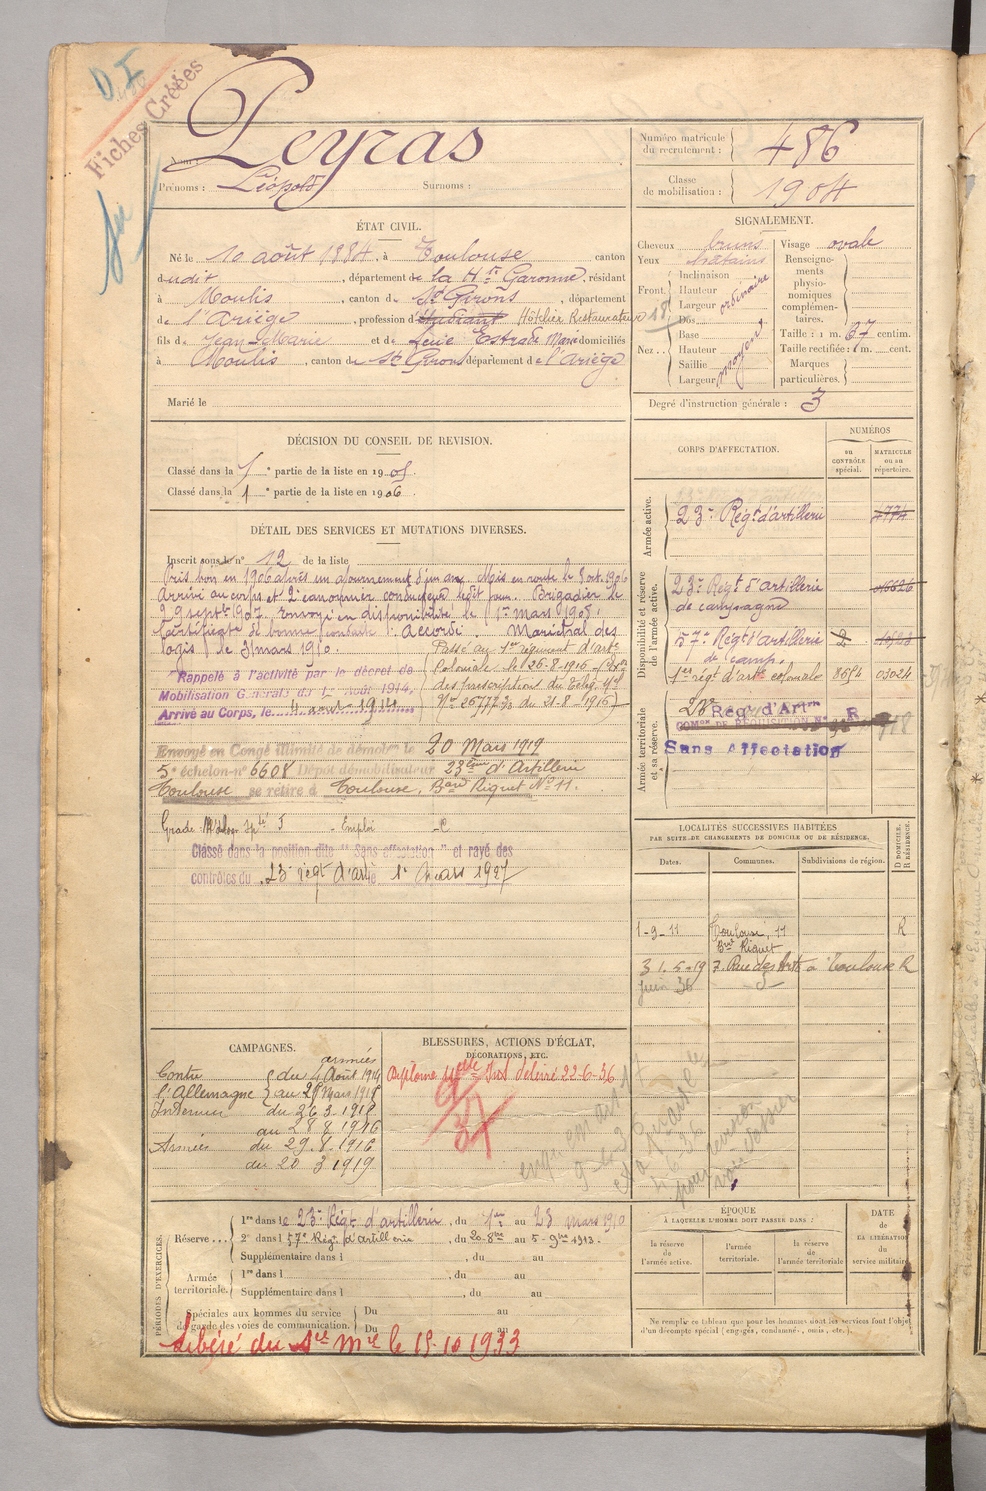 D I
Fiches Créées
Nom : Peyras
Prénoms : Léopold Surnoms :
Numéro matricule du recrutement : 486
Classe de mobilisation : 1904
ÉTAT CIVIL.
Né le 10 août 1884, à Toulouse canton
dudit, département de la Hte Garonne, résidant
à Moulis, canton de St Girons, département
de l'Ariège, profession d'étudiant Hôtelier Restaurateur
fils de Jean Marie et de Estrade Marie domiciliés
à Moulis, canton de St Girons département de l'Ariège
Marié le
SIGNALEMENT.
Cheveux bruns
Yeux chatains
Front. Inclinaison
Hauteur ordinaire
Largeur
Nez. Dos
Base
Hauteur moyen
Saillie
Largeur
Visage ovale
Renseignements physionomiques complémentaires.
Taille : 1 m. 67 centim.
Taille rectifiée : 1 m. cent.
Marques particulières.
Degré d'instruction générale : 3
DÉCISION DU CONSEIL DE REVISION.
Classé dans la 5e partie de la liste en 1905
Classé dans la 1e partie de la liste en 1906
DÉTAIL DES SERVICES ET MUTATIONS DIVERSES.
Inscrit sous le n° 12 de la liste
Pris bon en 1906 après un ajournement d'un an. Mis en route le 8 oct. 1906
Arrivé au corps et 2e canonnier conducteur ledit jour. Brigadier le
29 septbre 1907. Envoyé en disponibilité le 1er mars 1908.
Certificat de bonne conduite Accordé. Maréchal des
logis le 3 mars 1910.
Rappelé à l'activité par le décret de
Mobilisation Générale du 1er Août 1914.
Arrivé au Corps, le 4 août 1914
Passé au 1er régiment d'artie
Coloniale le 26-8-1916
des prescriptions du Télég. Mel
N° 26777 2/3 du 21-8-1916
Envoyé en Congé illimité de démobon le 20 Mars 1919
5e échelon n° 6608 Dépôt démobilisateur 23ème d'Artillerie
Toulouse se retire à Toulouse, Bard Riquet N° 11.
Grade : Emploi
Classé dans la position dite "Sans affectation" et rayé des
contrôles du 23e régt d'artie 1er Mars 1927
CORPS D'AFFECTATION.
NUMÉROS
au CONTRÔLE spécial.
MATRICULE ou au répertoire.
Armée active.
23e Régt d'artillerie 4774
Disponibilité et réserve de l'armée active.
23e Régt d'artillerie
de campagne
57e Régt d'artillerie 2
de camp.
1er régt d'artie coloniale 8654 03024
Armée territoriale et sa réserve.
23e Régt d'Artie
COMon DE RÉQUISITION N° R
Sans Affectation
LOCALITÉS SUCCESSIVES HABITÉES
PAR SUITE DE CHANGEMENTS DE DOMICILE OU DE RÉSIDENCE.
Dates. Communes. Subdivisions de région. D DOMICILE. R RÉSIDENCE.
1-9-11 Toulouse, 11 R
Bard Riquet
31-5-19 7. Rue des Arts à Toulouse R
juin 36
CAMPAGNES.
Contre armées
l'Allemagne du 4 Août 1914
Intérieur du 26 3 1915
au 28 8 1916
Armées du 29.8.1916
au 20 3 1919
BLESSURES, ACTIONS D'ÉCLAT,
DÉCORATIONS, ETC.
délivré 22-6-36
PÉRIODES D'EXERCICES.
Réserve... 1re dans le 23e Régt d'artillerie, du 1er au 23 mars 1910
2e dans l 57e Régt d'artillerie, du 20-8re au 5-9re 1913.
Supplémentaire dans l , du au
Armée territoriale. 1re dans l , du au
Supplémentaire dans l , du au
Spéciales aux hommes du service de garde des voies de communication. Du au
Du au
Libéré du Sce Mre le 15-10 1933
ÉPOQUE
À LAQUELLE L'HOMME DOIT PASSER DANS :
la réserve de l'armée active.
l'armée territoriale.
la réserve de l'armée territoriale
DATE de LA LIBÉRATION du service militaire
Ne remplir ce tableau que pour les hommes dont les services font l'objet d'un décompte spécial (engagés, condamnés, omis, etc.).